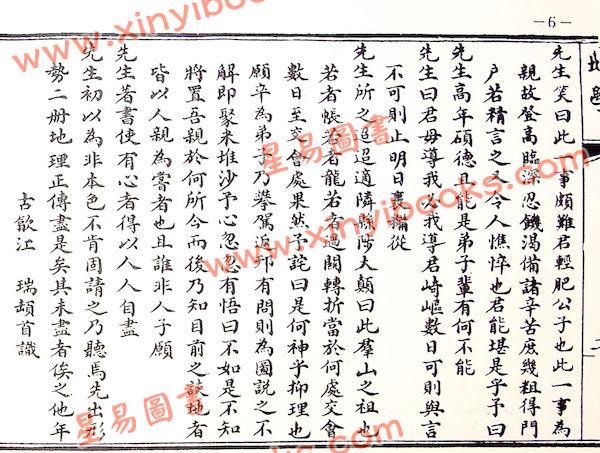 —6—
先生笑曰此一事頗難君輕肥公子也此一事為
親故登高臨深忍饑渴備諸辛苦庶幾粗得門
戶若精言之又令人憔悴也君能堪是乎予曰
先生高年碩德且能是弟子輩有何不能
先生曰君毋導我必我導君崎嶇數日可則與言
不可則止明日襄糧從
先生所之迢迢適隣縣陟大顛曰此羣山之祖也
若者帳若者龍若者過關轉折當於何處交會
數日至交會處果然予詫曰是何神乎抑理也
願卒為弟子乃攀駕返邗有問則為圖說之不
解即聚米堆沙予心忽忽有悟曰不如是不知
將置吾親於何所今而後乃知目前之談地者
皆以人親為嘗者也且誰非人子願
先生著書使有心者得以人人自盡
先生初以為非本色不肯固請之乃聽焉先出形
勢二冊地理正傳盡是矣其未盡者俟之他年
古歙江 瑞頡首識
www.xinyibooks.com
星易圖書
www.xinyibooks.com
星易圖書
www.xinyibooks.com
星易圖書